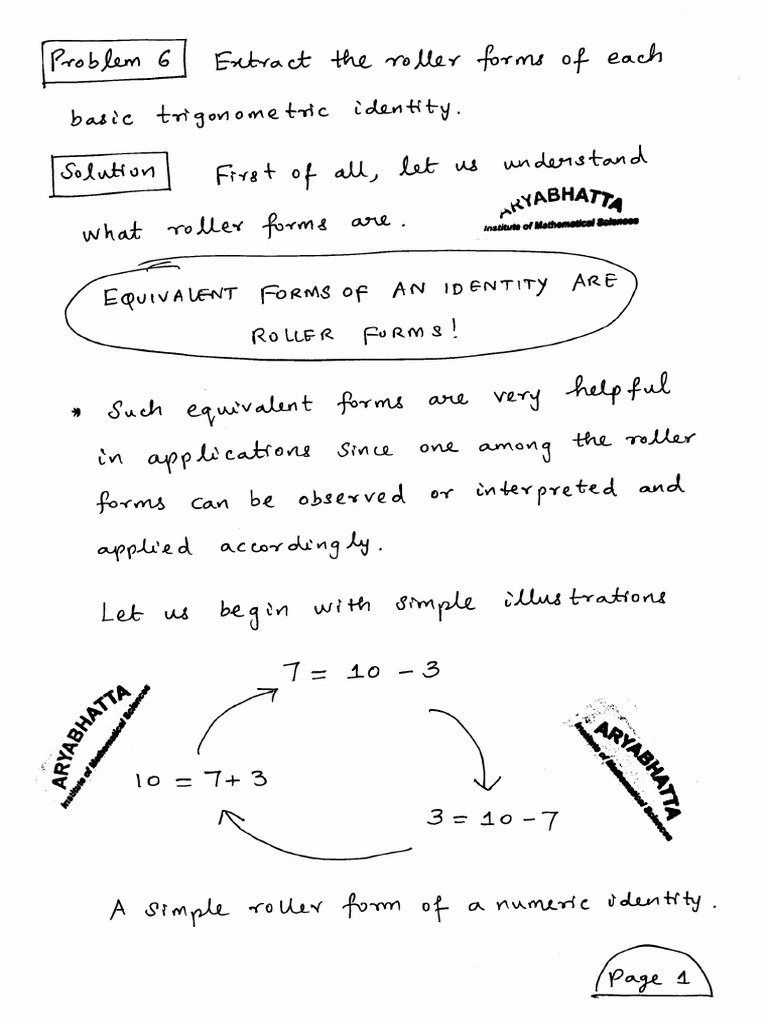 Problem 6 Extract the roller forms of each
basic trigonometric identity.
Solution First of all, let us understand
what roller forms are.
ARYABHATTA
Institute of Mathematical Sciences
EQUIVALENT FORMS OF AN IDENTITY ARE
ROLLER FORMS!
* Such equivalent forms are very helpful
in applications since one among the roller
forms can be observed or interpreted and
applied accordingly.
Let us begin with simple illustrations
7 = 10 - 3
ARYABHATTA
Institute of Mathematical Sciences
10 = 7 + 3
ARYABHATTA
Institute of Mathematical Sciences
3 = 10 - 7
A simple roller form of a numeric identity.
Page 1